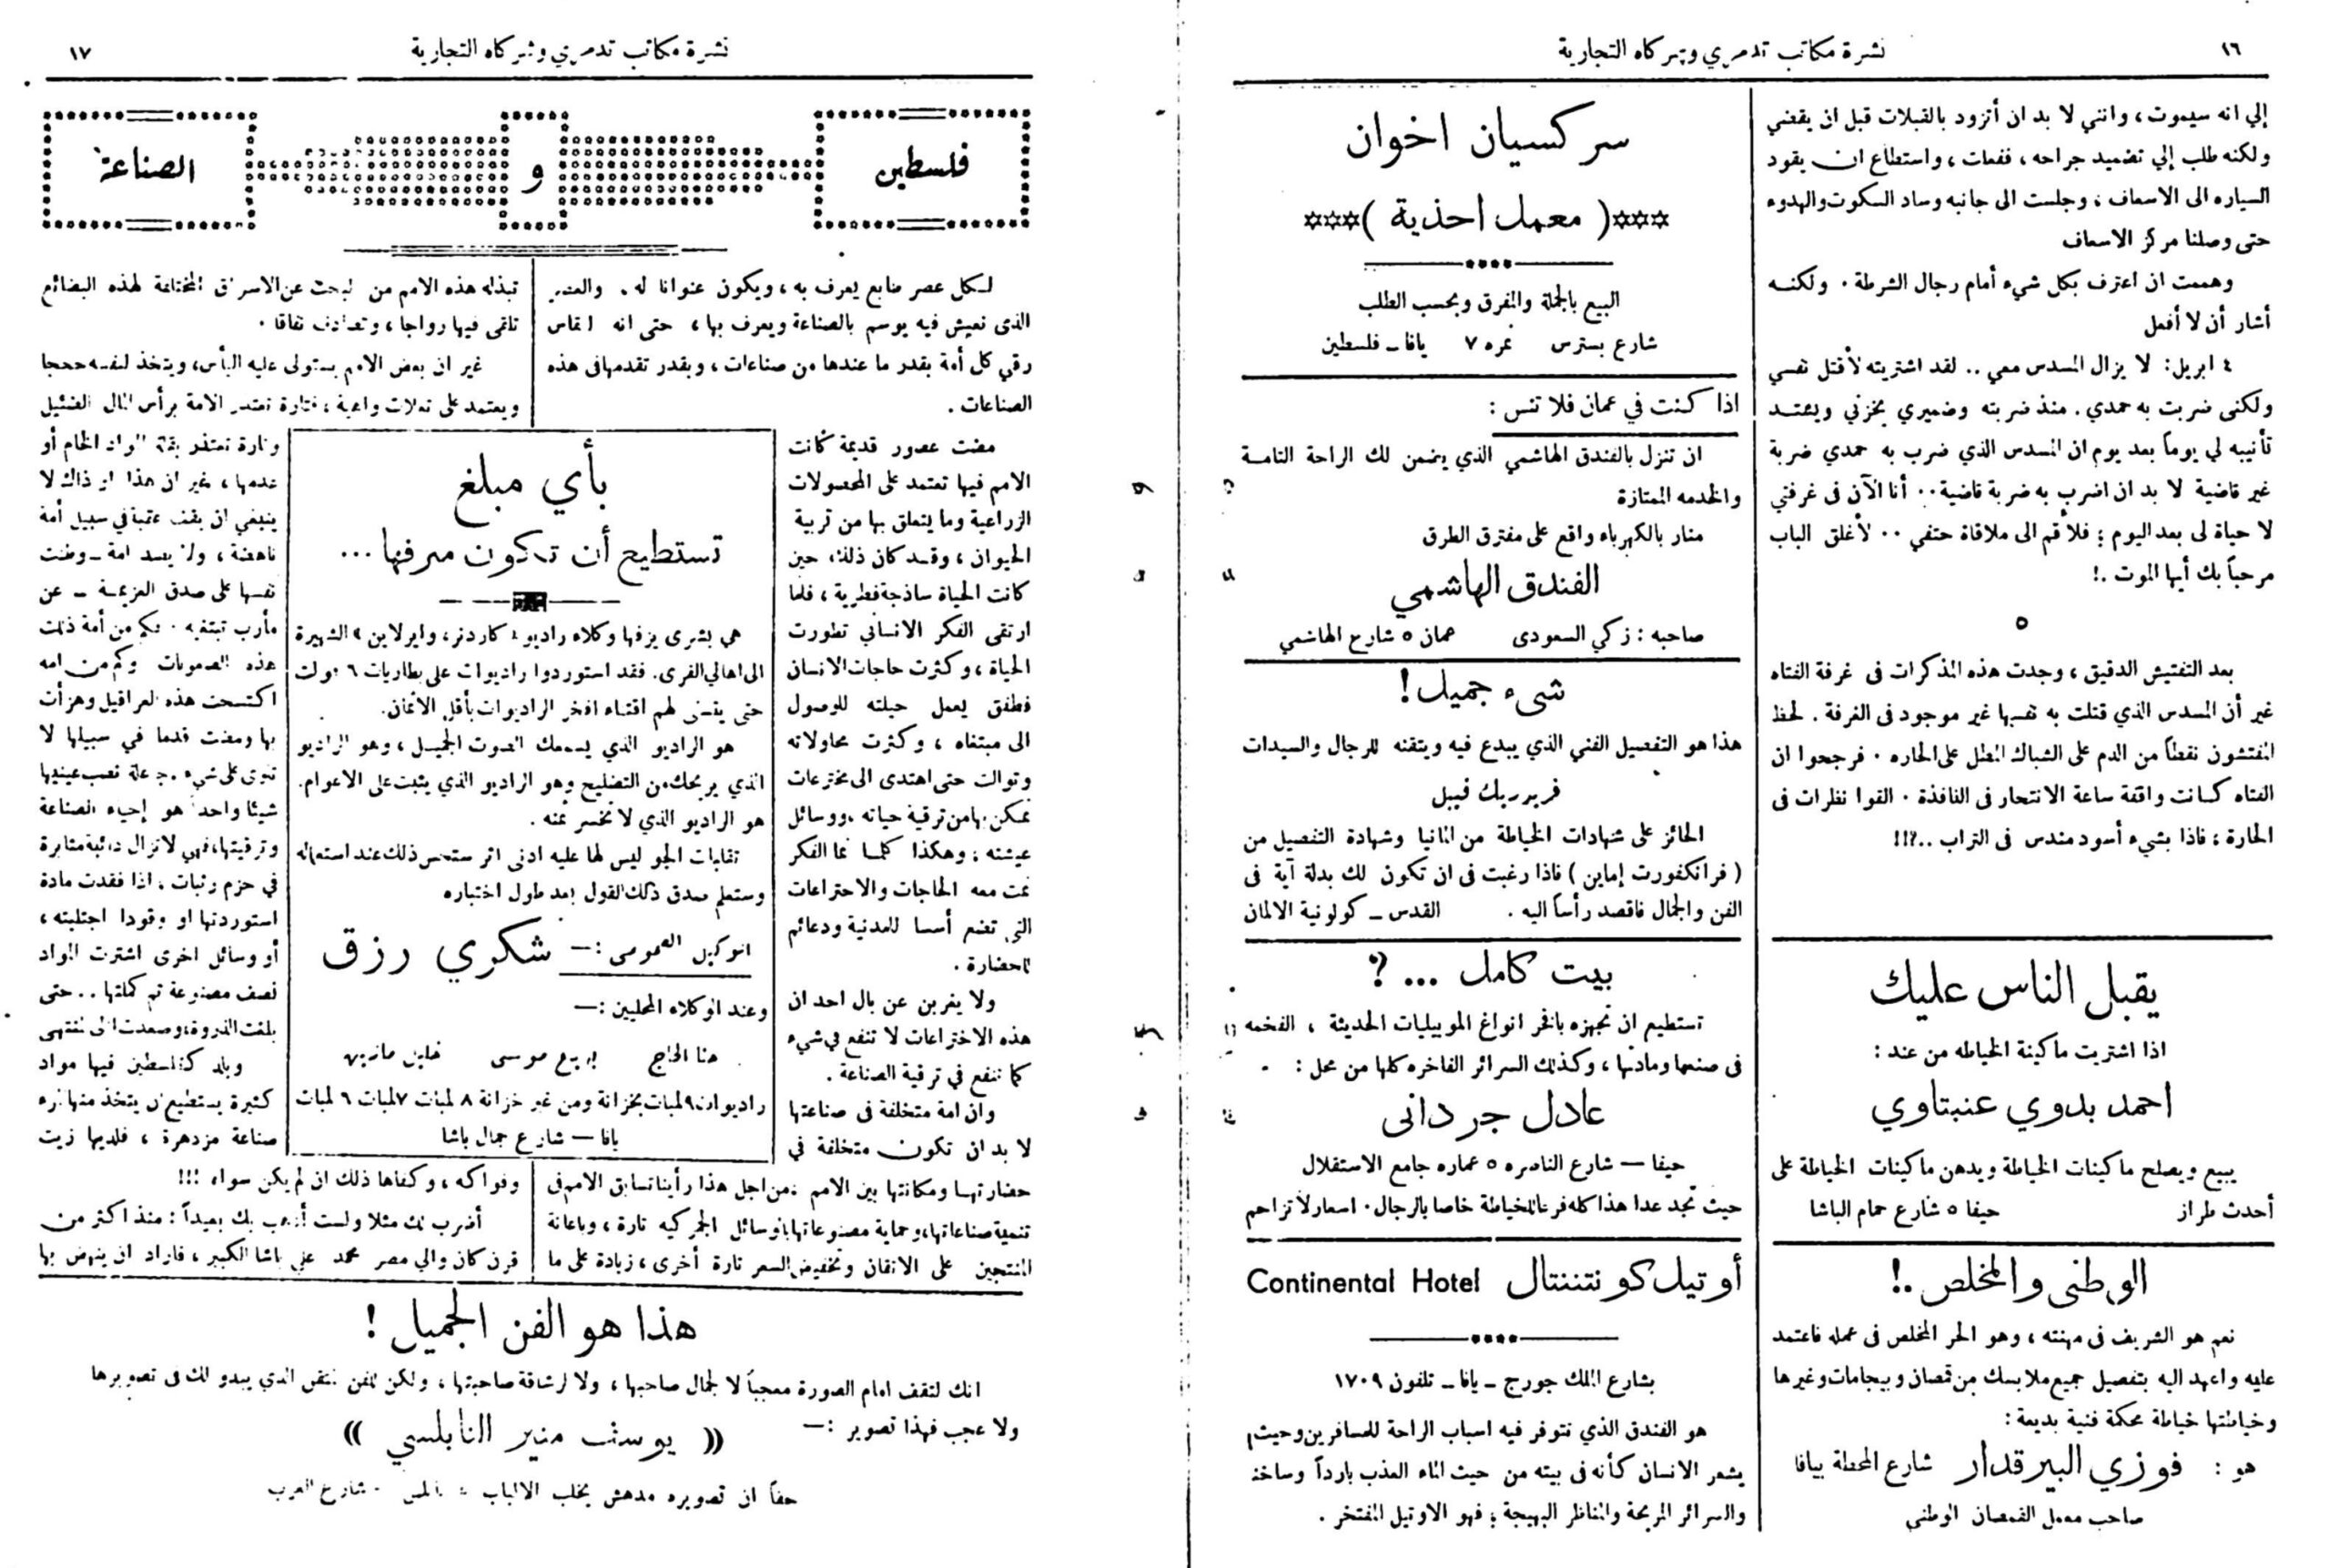 ١٦
نشرة مكاتب تدمري وشركاه التجارية
إلي انه سيموت ، وانني لا بد ان أتزود بالقبلات قبل ان يقضي
ولكنه طلب إلي تضميد جراحه ، ففعلت ، واستطاع ان يقود
السياره الى الاسعاف ، وجلست الى جانبه وساد السكوت والهدوء
حتى وصلنا مركز الاسعاف
وهممت ان اعترف بكل شيء أمام رجال الشرطة . ولكنه
أشار أن لا أفعل
٤ ابريل : لا يزال المسدس معي .. لقد اشتريته لأقتل نفسي
ولكنى ضربت به حمدي . منذ ضربته وضميري يخزني ويعتد
تأنيبه لي يوماً بعد يوم ان المسدس الذي ضرب به حمدي ضربة
غير قاضية لا بد ان اضرب به ضربة قاضية .. أنا الآن فى غرفتي
لا حياة لى بعد اليوم ؛ فلأقم الى ملاقاة حتفي .. لأغلق الباب
مرحباً بك أيها الموت .!
٥
بعد التفتيش الدقيق ، وجدت هذه المذكرات فى غرفة الفتاه
غير أن المسدس الذي قتلت به نفسها غير موجود فى الغرفة . لحظ
المفتشون نقطاً من الدم على الشباك المطل على الحاره . فرجحوا ان
الفتاه كانت واقفة ساعة الانتحار فى النافذة . القوا نظرات فى
الحارة ، فاذا بشيء أسود مندس فى التراب ..؟!!
يقبل الناس عليك
اذا اشتريت ماكينة الخياطه من عند :
احمد بدوي عنبتاوي
يبيع ويصلح ماكينات الخياطة ويدهن ماكينات الخياطة على
أحدث طراز حيفا ٥ شارع حمام الباشا
الوطنى والمخلص .!
نعم هو الشريف فى مهنته ، وهو الحر المخلص فى عمله فاعتمد
عليه واعهد اليه بتفصيل جميع ملابسك من قمصان وبيجامات وغيرها
وخياطتها خياطة محكمة فنية بديعة :
هو : فوزي البيرقدار شارع المحطة بيافا
صاحب معمل القمصان الوطنى
سركسيان اخوان
***( معمل احذية )***
البيع بالجملة والمفرق وبحسب الطلب
شارع بسترس نمره ٧ يافا ـ فلسطين
اذا كنت في عمان فلا تنس :
ان تنزل بالفندق الهاشمي الذي يضمن لك الراحة التامة
والخدمه الممتازة
منار بالكهرباء واقع على مفترق الطرق
الفندق الهاشمي
صاحبه : زكي السعودى عمان ٥ شارع الهاشمي
شىء جميل !
هذا هو التفصيل الفني الذي يبدع فيه ويتقنه للرجال والسيدات
فريدريك فيبل
الحائز على شهادات الخياطة من المانيا وشهادة التفصيل من
( فرانكفورت إماين ) فاذا رغبت فى ان تكون لك بدلة آية فى
الفن والجمال فاقصد رأساً اليه . القدس ـ كولونية الالمان
بيت كامل ... ؟
تستطيع ان تجهزه بافخر انواع الموبيليات الحديثة ، الفخمه
فى صنعها ومادتها ، وكذلك السرائر الفاخره كلها من محل :
عادل جردانى
حيفا — شارع الناصره ٥ عماره جامع الاستقلال
حيث تجد عدا هذا كله فرعا للخياطة خاصا بالرجال . اسعار لا تزاحم
أوتيل كونتننتال Continental Hotel
بشارع الملك جورج ـ يافا ـ تلفون ١٧٠٩
هو الفندق الذي تتوفر فيه اسباب الراحة للمسافرين وحيث
يشعر الانسان كأنه فى بيته من حيث الماء العذب بارداً وساخنا
والسرائر المريحة والمناظر البهيجة ؛ فهو الاوتيل المفتخر .
نشرة مكاتب تدمري وشركاه التجارية
١٧
فلسطين و الصناعة
لكل عصر طابع يعرف به ، ويكون عنوانا له . والعصر
الذى نعيش فيه يوسم بالصناعة ويعرف بها ، حتى انه لتقاس
رقي كل أمة بقدر ما عندها من صناعات ، وبقدر تقدمها فى هذه
الصناعات .
مضت عصور قديمة كانت
الامم فيها تعتمد على المحصولات
الزراعية وما يتعلق بها من تربية
الحيوان ، وقد كان ذلك حين
كانت الحياة ساذجة فطرية ، فلما
ارتقى الفكر الانساني تطورت
الحياة ، وكثرت حاجات الانسان
فطفق يعمل حيلته للوصول
الى مبتغاه ، وكثرت محاولاته
وتوالت حتى اهتدى الى مخترعات
تمكن بها من ترقية حياته ، ووسائل
عيشته ، وهكذا كلما نما الفكر
نمت معه الحاجات والاختراعات
التى تضع أسسا للمدنية ودعائم
للحضارة .
ولا يغربن عن بال احد ان
هذه الاختراعات لا تنفع في شيء
كما تنفع في ترقية الصناعة .
وان امة متخلفة فى صناعتها
لا بد ان تكون متخلفة في
حضارتها ومكانتها بين الامم من اجل هذا رأينا تسابق الامم فى
تنمية صناعاتها ، وحماية مصنوعاتها بالوسائل الجمركيه تارة ، وباعانة
المنتجين على الاتقان وتخفيض السعر تارة أخرى ، زيادة على ما
تبذله هذه الامم من البحث عن الاسواق المختلفة لهذه البضائع
تلقى فيها رواجا ، وتصادف نفاقا .
غير ان بعض الامم يستولى عليه اليأس ، ويتخذ لنفسه حججا
ويعتمد على تعلات واهية ، فتارة تعتذر الامة برأس المال الضئيل
وتارة تعتذر بقلة المواد الخام أو
عدمها ، غير ان هذا او ذاك لا
ينبغي ان يقف عقبة في سبيل أمة
ناهضة ، ولن يصد امة ـ وطنت
نفسها على صدق العزيمة ـ عن
مأرب تبتغيه . فكم من أمة ذللت
هذه الصعوبات وكم من امه
اكتسحت هذه العراقيل وهزأت
بها ومضت قدما في سبيلها لا
تلوى على شيء . جاعلة نصب عينيها
شيئا واحدا هو إحياء الصناعة
وترقيتها ، فهي لا تزال دائبة مثابرة
في حزم وثبات ، اذا فقدت مادة
استوردتها او وقودا اجتلبته ،
أو وسائل اخرى اشترت المواد
نصف مصنوعة ثم كملتها .. حتى
بلغت الذروة ، وصعدت الى المنتهى
وبلد كفلسطين فيها مواد
كثيرة يستطيع ان يتخذ منها نواه
صناعة مزدهرة ، فلديها زيت
وفواكه ، وكفاها ذلك ان لم يكن سواه !!!
أضرب لك مثلا ولست أذهب بك بعيداً : منذ اكثر من
قرن كان والي مصر محمد علي باشا الكبير ، فاراد ان ينهض بها
بأي مبلغ
تستطيع أن تكون مرفها ...
هي بشرى يزفها وكلاء راديو « كاردنر ، وايرلاين » الشهيرة
الى اهالي القرى . فقد استوردوا راديوات على بطاريات ٦ فولت
حتى يتسنى لهم اقتناء افخر الراديوات بأقل الأثمان .
هو الراديو الذي يسمعك الصوت الجميل ، وهو الراديو
الذي يريحك من التصليح وهو الراديو الذي يثبت على الاعوام .
هو الراديو الذي لا تخسر ثمنه .
تقلبات الجو ليس لها عليه ادنى اثر ستحس ذلك عند استعماله
وستعلم صدق ذلك القول بعد طول اختباره
الوكيل العمومى :— شكري رزق
وعند الوكلاء المحليين :—
حنا الحاج بديع موسى
راديوات ٩ لمبات بخزانة ومن غير خزانة ٨ لمبات ٧ لمبات ٦ لمبات
يافا — شارع جمال باشا
هذا هو الفن الجميل !
انك لتقف امام الصورة معجباً لا لجمال صاحبها ، ولا لرشاقة صاحبتها ، ولكن للفن المتقن الذي يبدو لك فى تصويرها
ولا عجب فهذا تصوير :—
« يوسف منير النابلسي »
حقاً ان تصويره مدهش يخلب الالباب